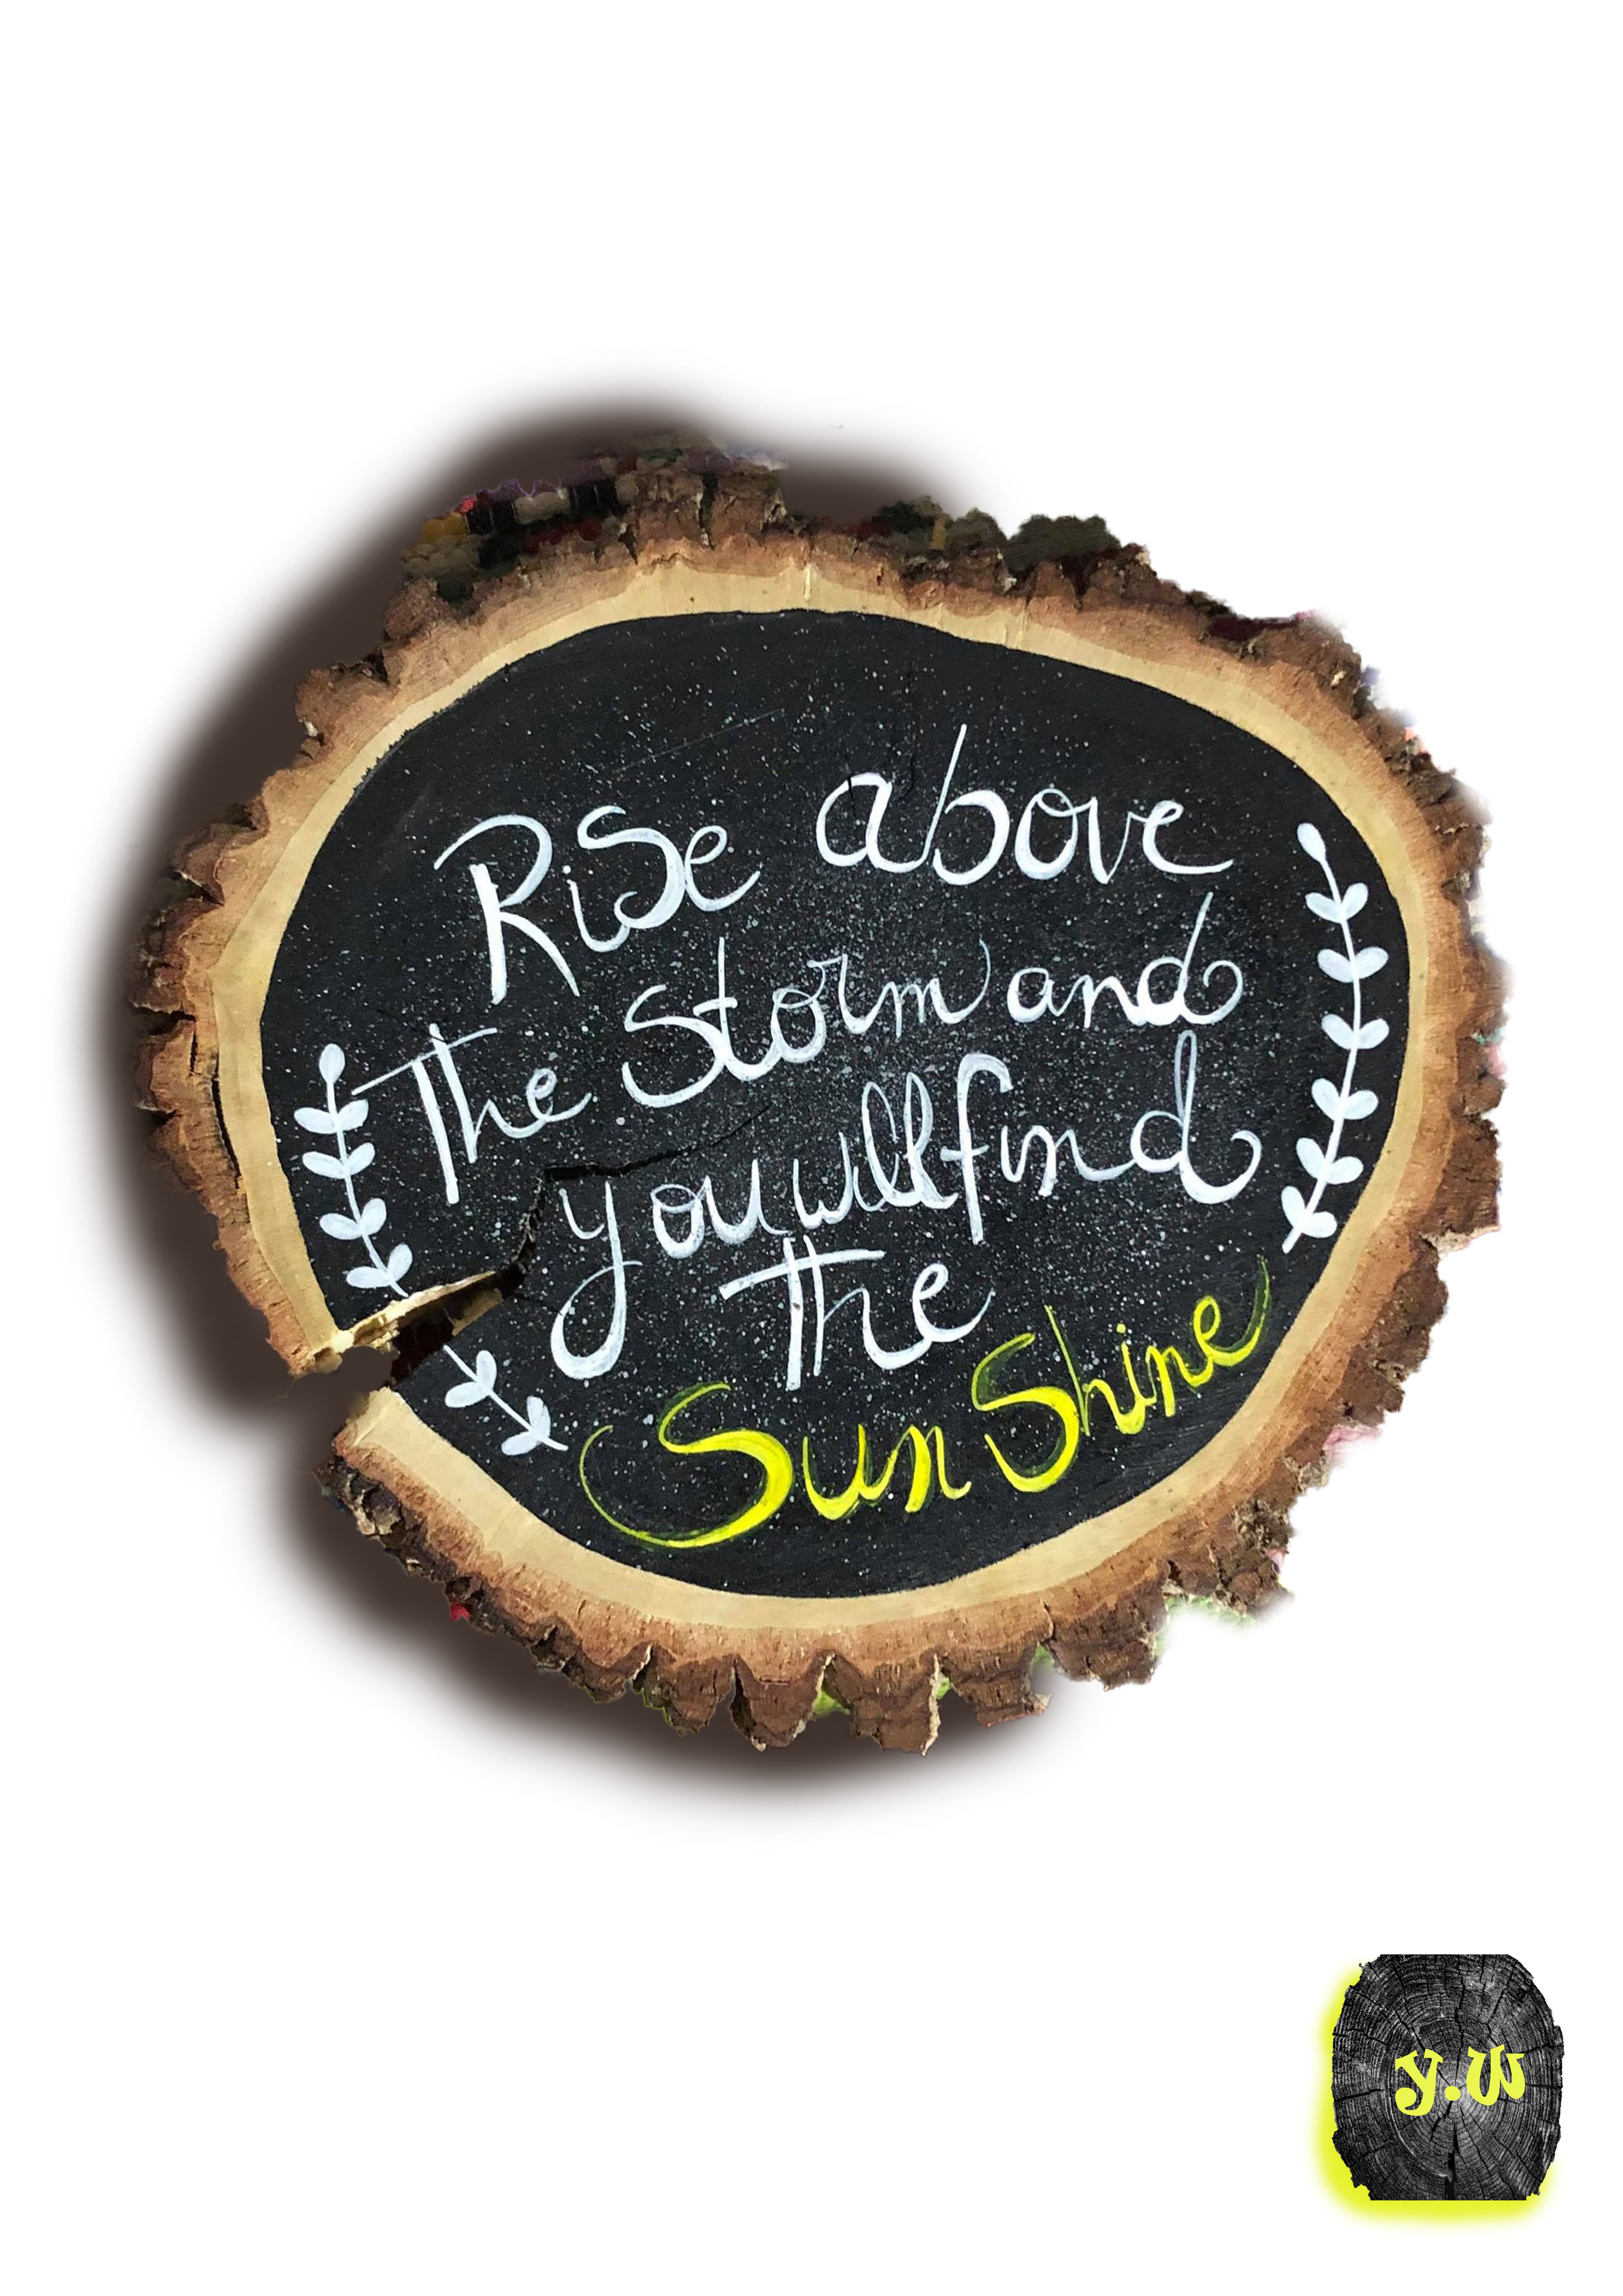 Rise above
The Storm and
you will find
The
Sun Shine
y.w